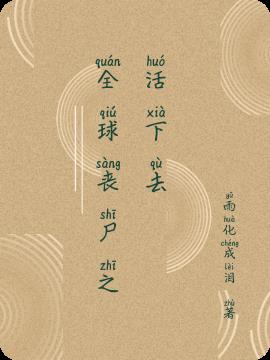 quán
全
qiú
球
sàng
丧
shī
尸
zhī
之
huó
活
xià
下
qù
去
yǔ
雨
huà
化
chéng
成
lèi
泪
zhù
著